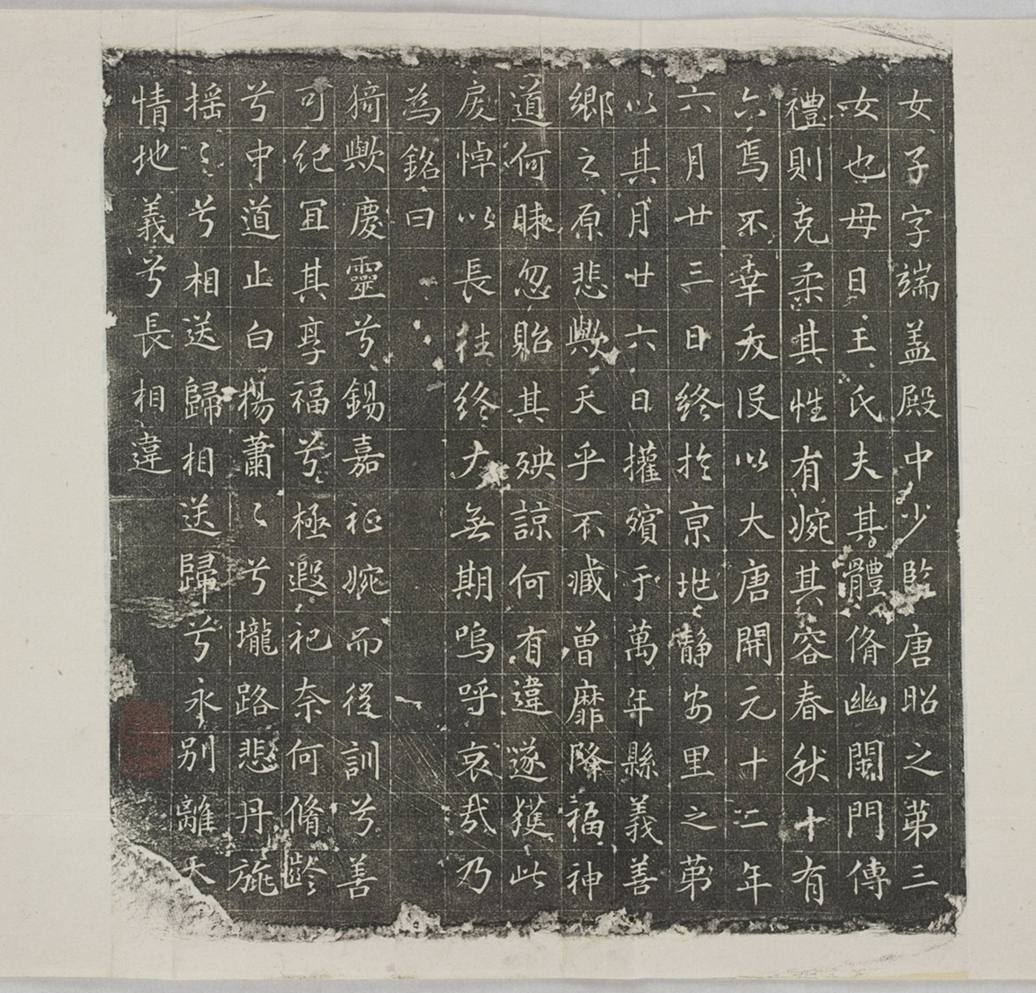 女子字端盖殿中少監唐昭之苐三
女也母曰王氏夫其體脩幽閑門傳
禮則克柔其性有婉其容春秋十有
六焉不幸夭歿以大唐開元十二年
六月廿三日終於京地静安里之苐
以其月廿六日權殯于萬年縣義善
鄉之原悲歟天乎不臧曾靡降福神
道何昧忽貽其殃諒何有違遂獲此
戾悼以長往終古無期嗚呼哀哉乃
為銘曰
猗歟慶靈兮錫嘉祉婉而從訓兮善
可紀宜其享福兮極遐祀奈何脩齡
兮中道止白楊蕭〻兮壠路悲丹旐
摇〻兮相送歸相送歸兮永别離天
情地義兮長相違